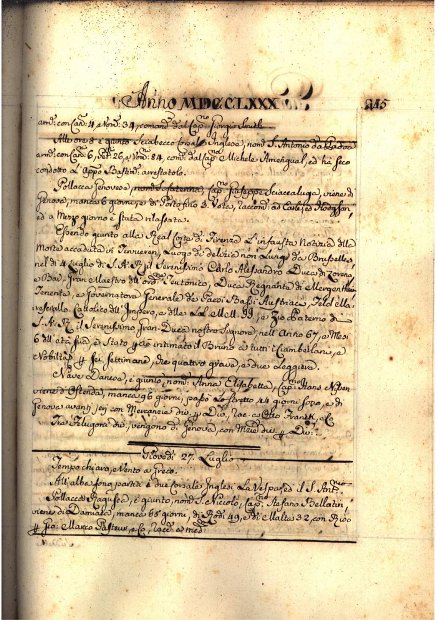 Anno MDCCLXXX 245
arm. con Can. 4, e Uom. 34, comand. dal Cap.no Giorgio Smith
Alle ore 8 è giunto Sciabecco Corsale Inglese, nom. S. Antonio da Padova
arm. con Can. 6, Pet. 26, e Uom. 84, com. dal Cap.no Michele Amengual, ed ha seco
condotto il Arrestatolo.
Pollacca Genovese, nom. Cap.no Giuseppe Sciaccaluga, viene di
Genova, manca 6 giorni, e di Portofino 3, Vota, raccom. ad
ed a Mezzo giorno è stata rilasciata.
Essendo giunto alla Real Corte di Firenze l'infausta Notizia della
Morte accaduta in Luogo di delizie non Lungi da Bruselles,
nel dì 4 Luglio di S. A. R. il Serenissimo Carlo Alessandro Duca di Lorena
e Bar, Gran Maestro dell'Ord. Teutonico, Duca Regnante di Mergentheim
Tenente, e Governatore Generale dei Paesi Bassi Austriaci,
Cattolico dell'Impero, e delle LL. MM. e Zio Paterno di
S. A. R. il Serenissimo Gran Duca nostro Signore, nell'Anno 67, e Mesi
6 dell'età sua, è stato intimato il Bruno a tutti i Ciambellani, e
Nobiltà p. sei settimane, di quattro grave, e due Leggiere.
Nave Danese, è giunto, nom. Anna Elisabetta, Cap.no Hans
viene d'Ostenda, manca 96 giorni, passò lo stretto, 28 giorni sono, e di
Genova avanz. jeri con Mercanzie div. p.
Tre Felugoni div. vengono di Genova, con Merci div. p. Div.
Giovedì 27. Luglio
Tempo chiaro, e Vento a Greco.
All'alba son partiti i due Corsali Inglesi La Vespa, ed il S. Ant.
Pollacca Ragusea, è giunto, nom. S. Niccolò, Cap.no Stefano Bellatin,
viene di Damiata, manca 65 giorni, di Rodi 49, e di Malta 32, con Riso
p. Gio. Marco Pasteur, e C.